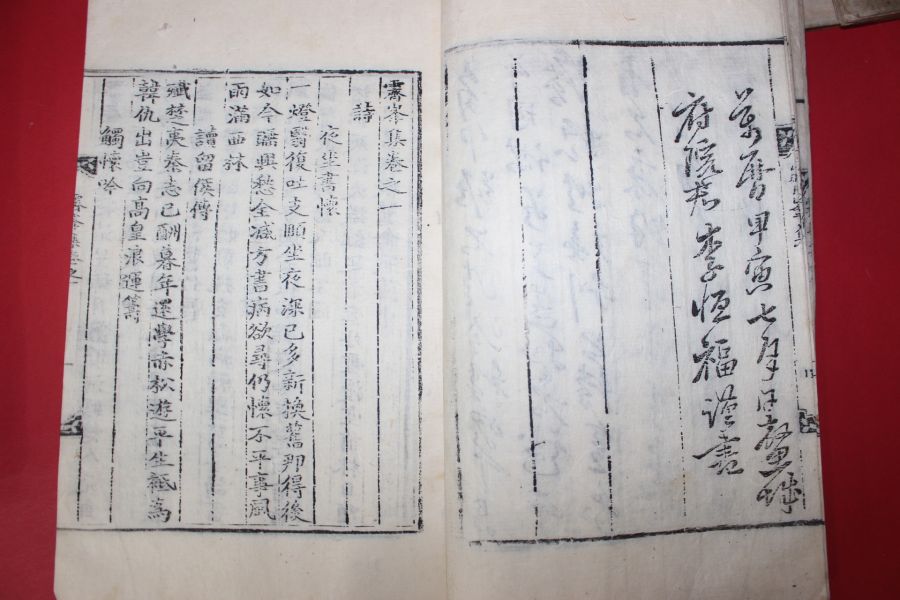 萬曆甲寅七月日鰲城
府院君李恒福謹書
霽峯集卷之一
詩
夜坐書懷
一燈翳復吐支頤坐夜深已多新換舊那得後
如今興愁全減方書病欲尋仍懷不平事風
雨滿西林
讀留侯傳
殲楚夷秦志已酬暮年還學赤松遊平生祗爲
韓仇出豈向高皇浪運籌
觸懷吟